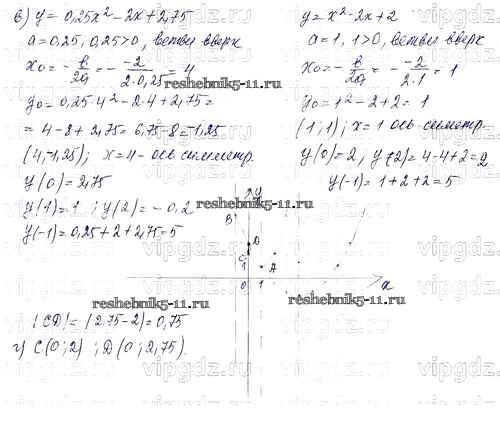 в) y = 0,25x² - 2x + 2,75
a = 0,25, 0,25>0, ветви вверх
x₀ = - в/2a = - -2/2·0,25 = 4
y₀ = 0,25·4² - 2·4 + 2,75 =
= 4 - 8 + 2,75 = 6,75 - 8 = -1,25
(4; -1,25); x = 4 - ось симметр.
y(0) = 2,75
y(1) = 1; y(2) = -0,2
y(-1) = 0,25 + 2 + 2,75 = 5
y = x² - 2x + 2
a = 1, 1>0, ветви вверх
x₀ = - в/2a = - -2/2·1 = 1
y₀ = 1² - 2 + 2 = 1
(1; 1); x = 1 ось симетр.
y(0) = 2, y(2) = 4 - 4 + 2 = 2
y(-1) = 1 + 2 + 2 = 5
y
B
D
C
1
A
0
1
x
|CD| = |2,75 - 2| = 0,75
г) C(0; 2); D(0; 2,75).
reshebnik5-11.ru
reshebnik5-11.ru
reshebnik5-11.ru
reshebnik5-11.ru
vipgdz.ru